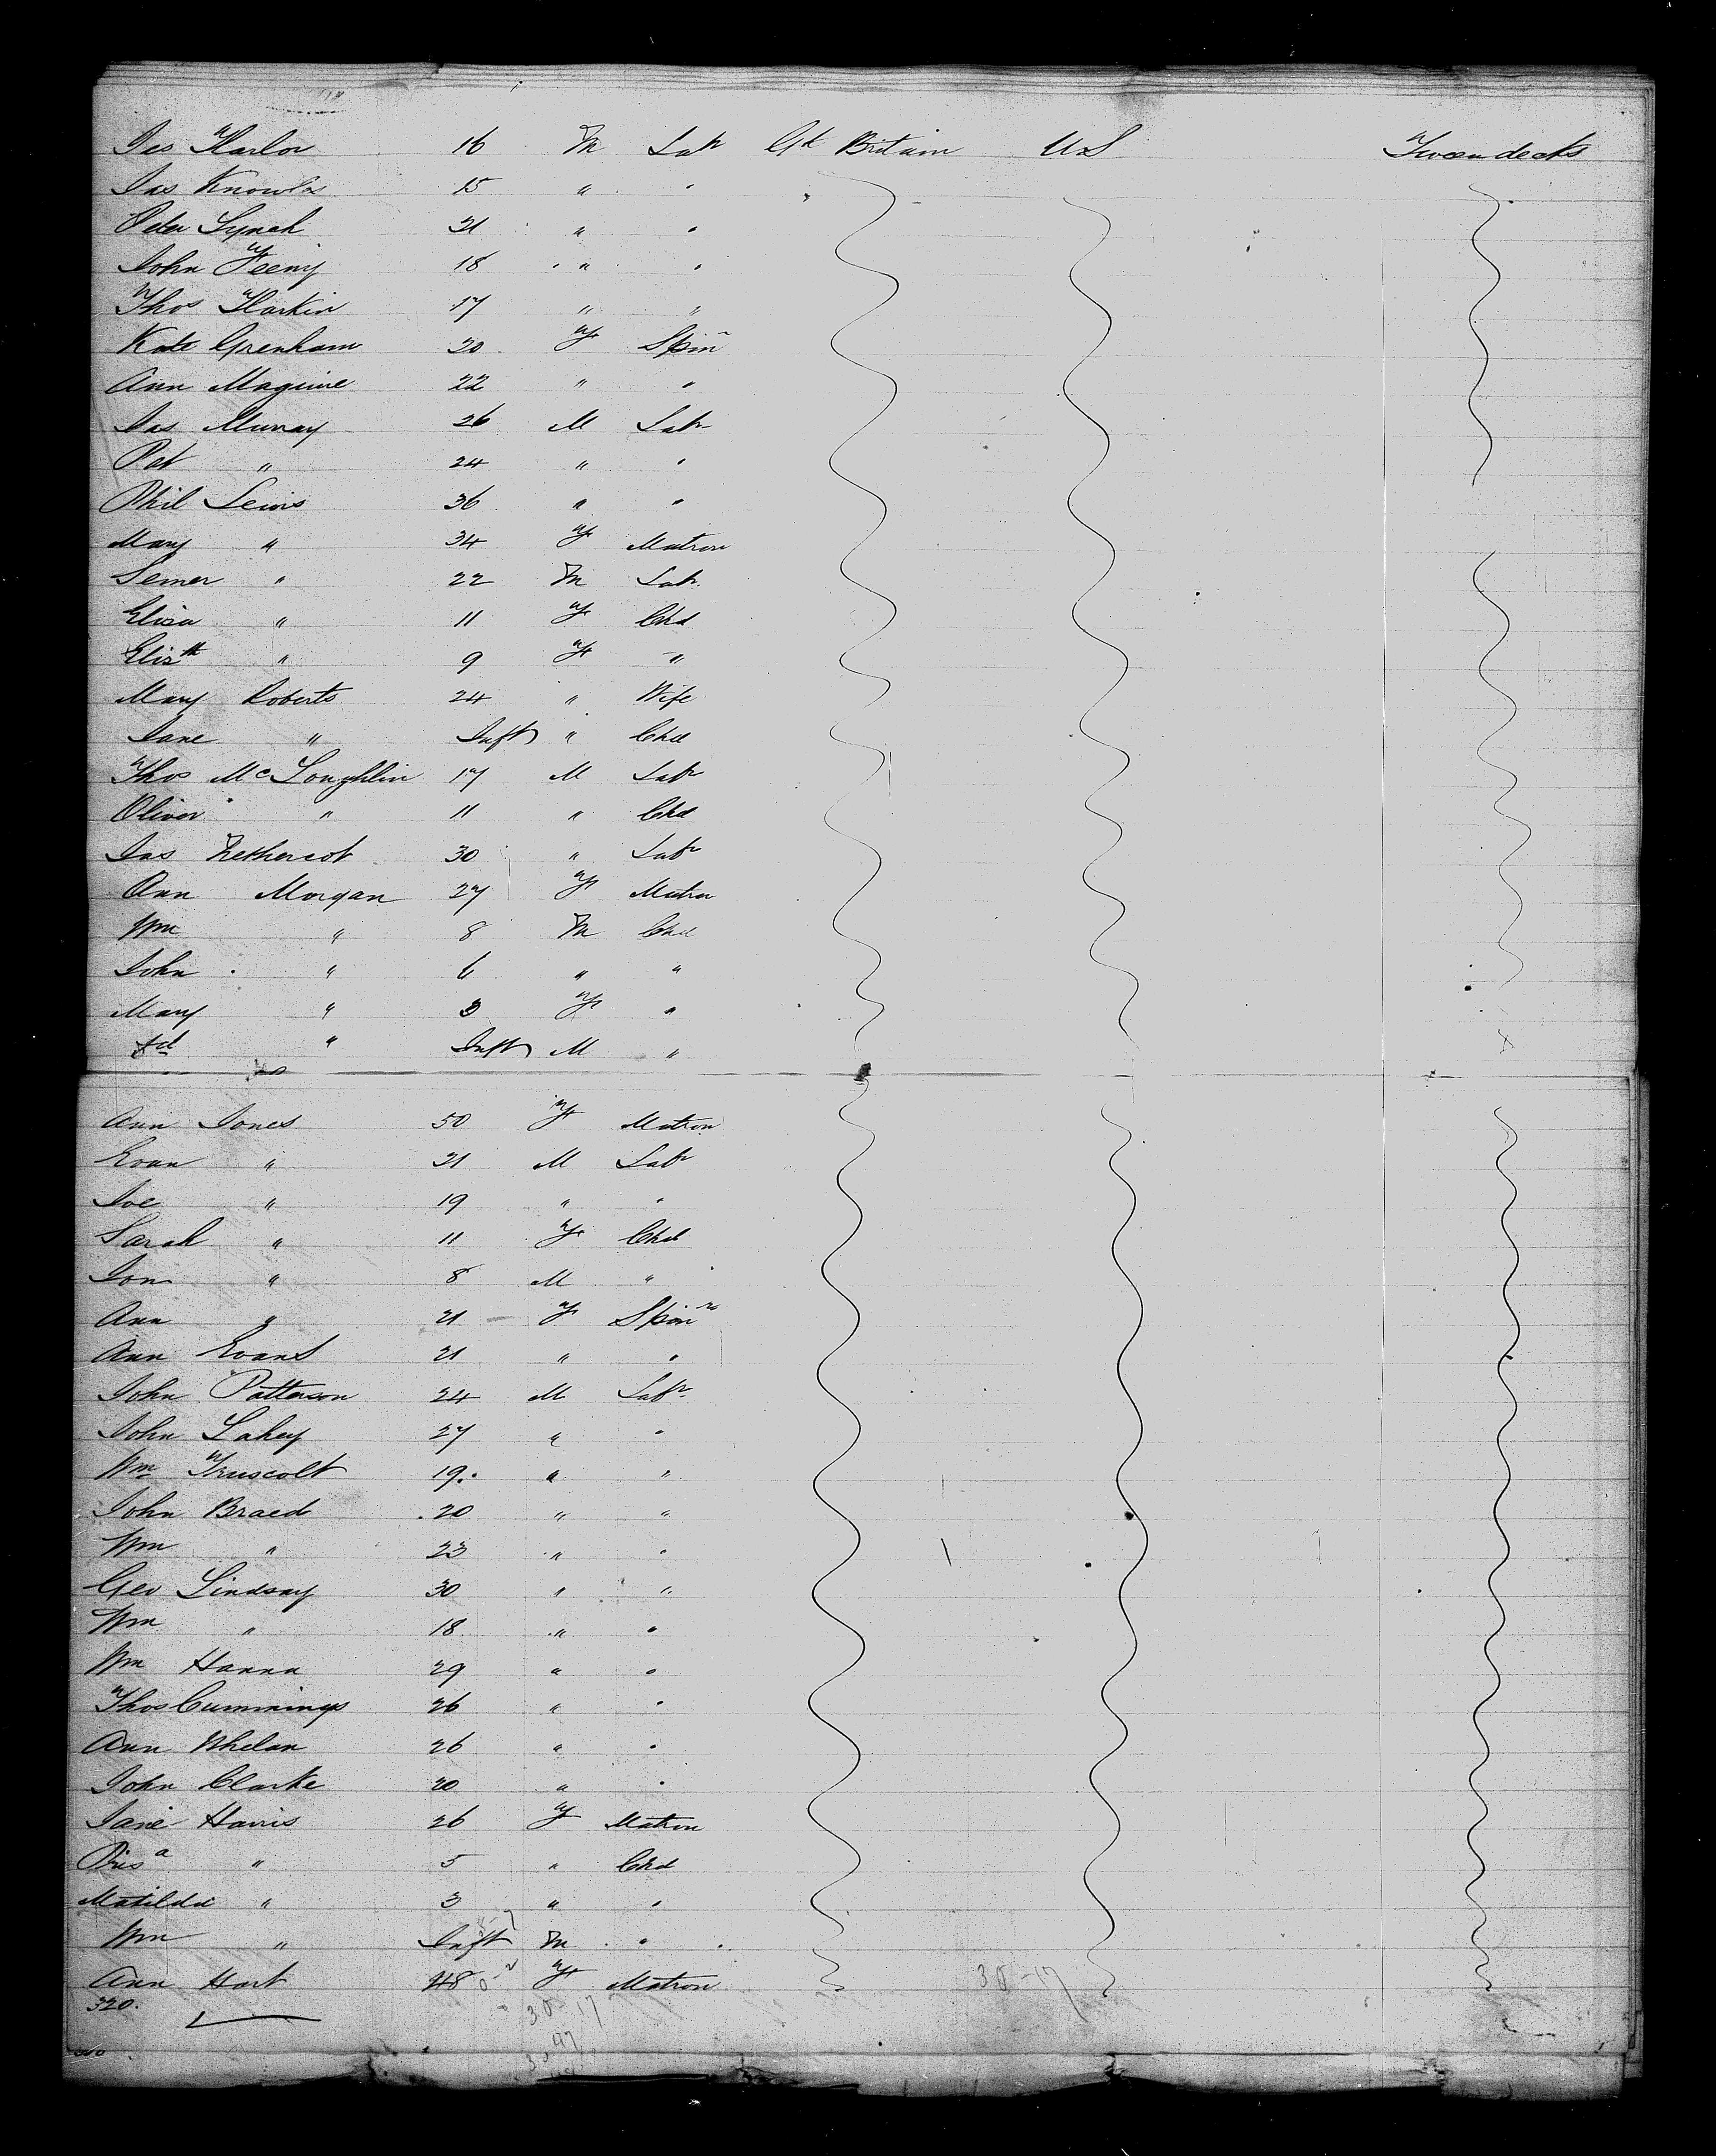 Jas Harlor 16 M Labr Gt Britain U S Tween decks
Jas Knowles 15 " "
Peter Lynch 21 " "
John Feeny 18 " "
Thos Harkin 17 " "
Kate Grenham 20 F Spinr
Ann Maguire 22 " "
Jas Murray 26 M Labr
Pat " 24 " "
Phil Lewis 36 " "
Mary " 34 F Matron
" 22 M Labr
Eliza " 11 F Chd
Elizth " 9 F "
Mary Roberts 24 " Wife
Jane " Inft " Chd
Thos McLoughlin 17 M Labr
Oliver " 11 " Chd
Jas Nethercot 30 " Labr
Ann Morgan 27 F Matron
Wm " 8 M Chd
John " 6 " "
Mary " 3 F "
Ed " Inft M "
Ann Jones 50 F Matron
Evan " 21 M Labr
Joe " 19 " "
Sarah " 11 F Chd
Jon " 8 M "
Ann " 21 F Spinr
Ann Evans 21 " "
John Patterson 24 M Labr
John Lahey 27 " "
Wm Truscott 19 " "
John Braed 20 " "
Wm " 23 " "
Geo Lindsay 30 " "
Wm " 18 " "
Wm Hanna 29 " "
Thos Cummings 26 " "
Ann Whelan 26 " "
John Clarke 20 " "
Jane Harris 26 F Matron
Prisa " 5 " Chd
Matilda " 3 " "
Wm " Inft M "
Ann Hart 48 F Matron 30-17
320.
30 17